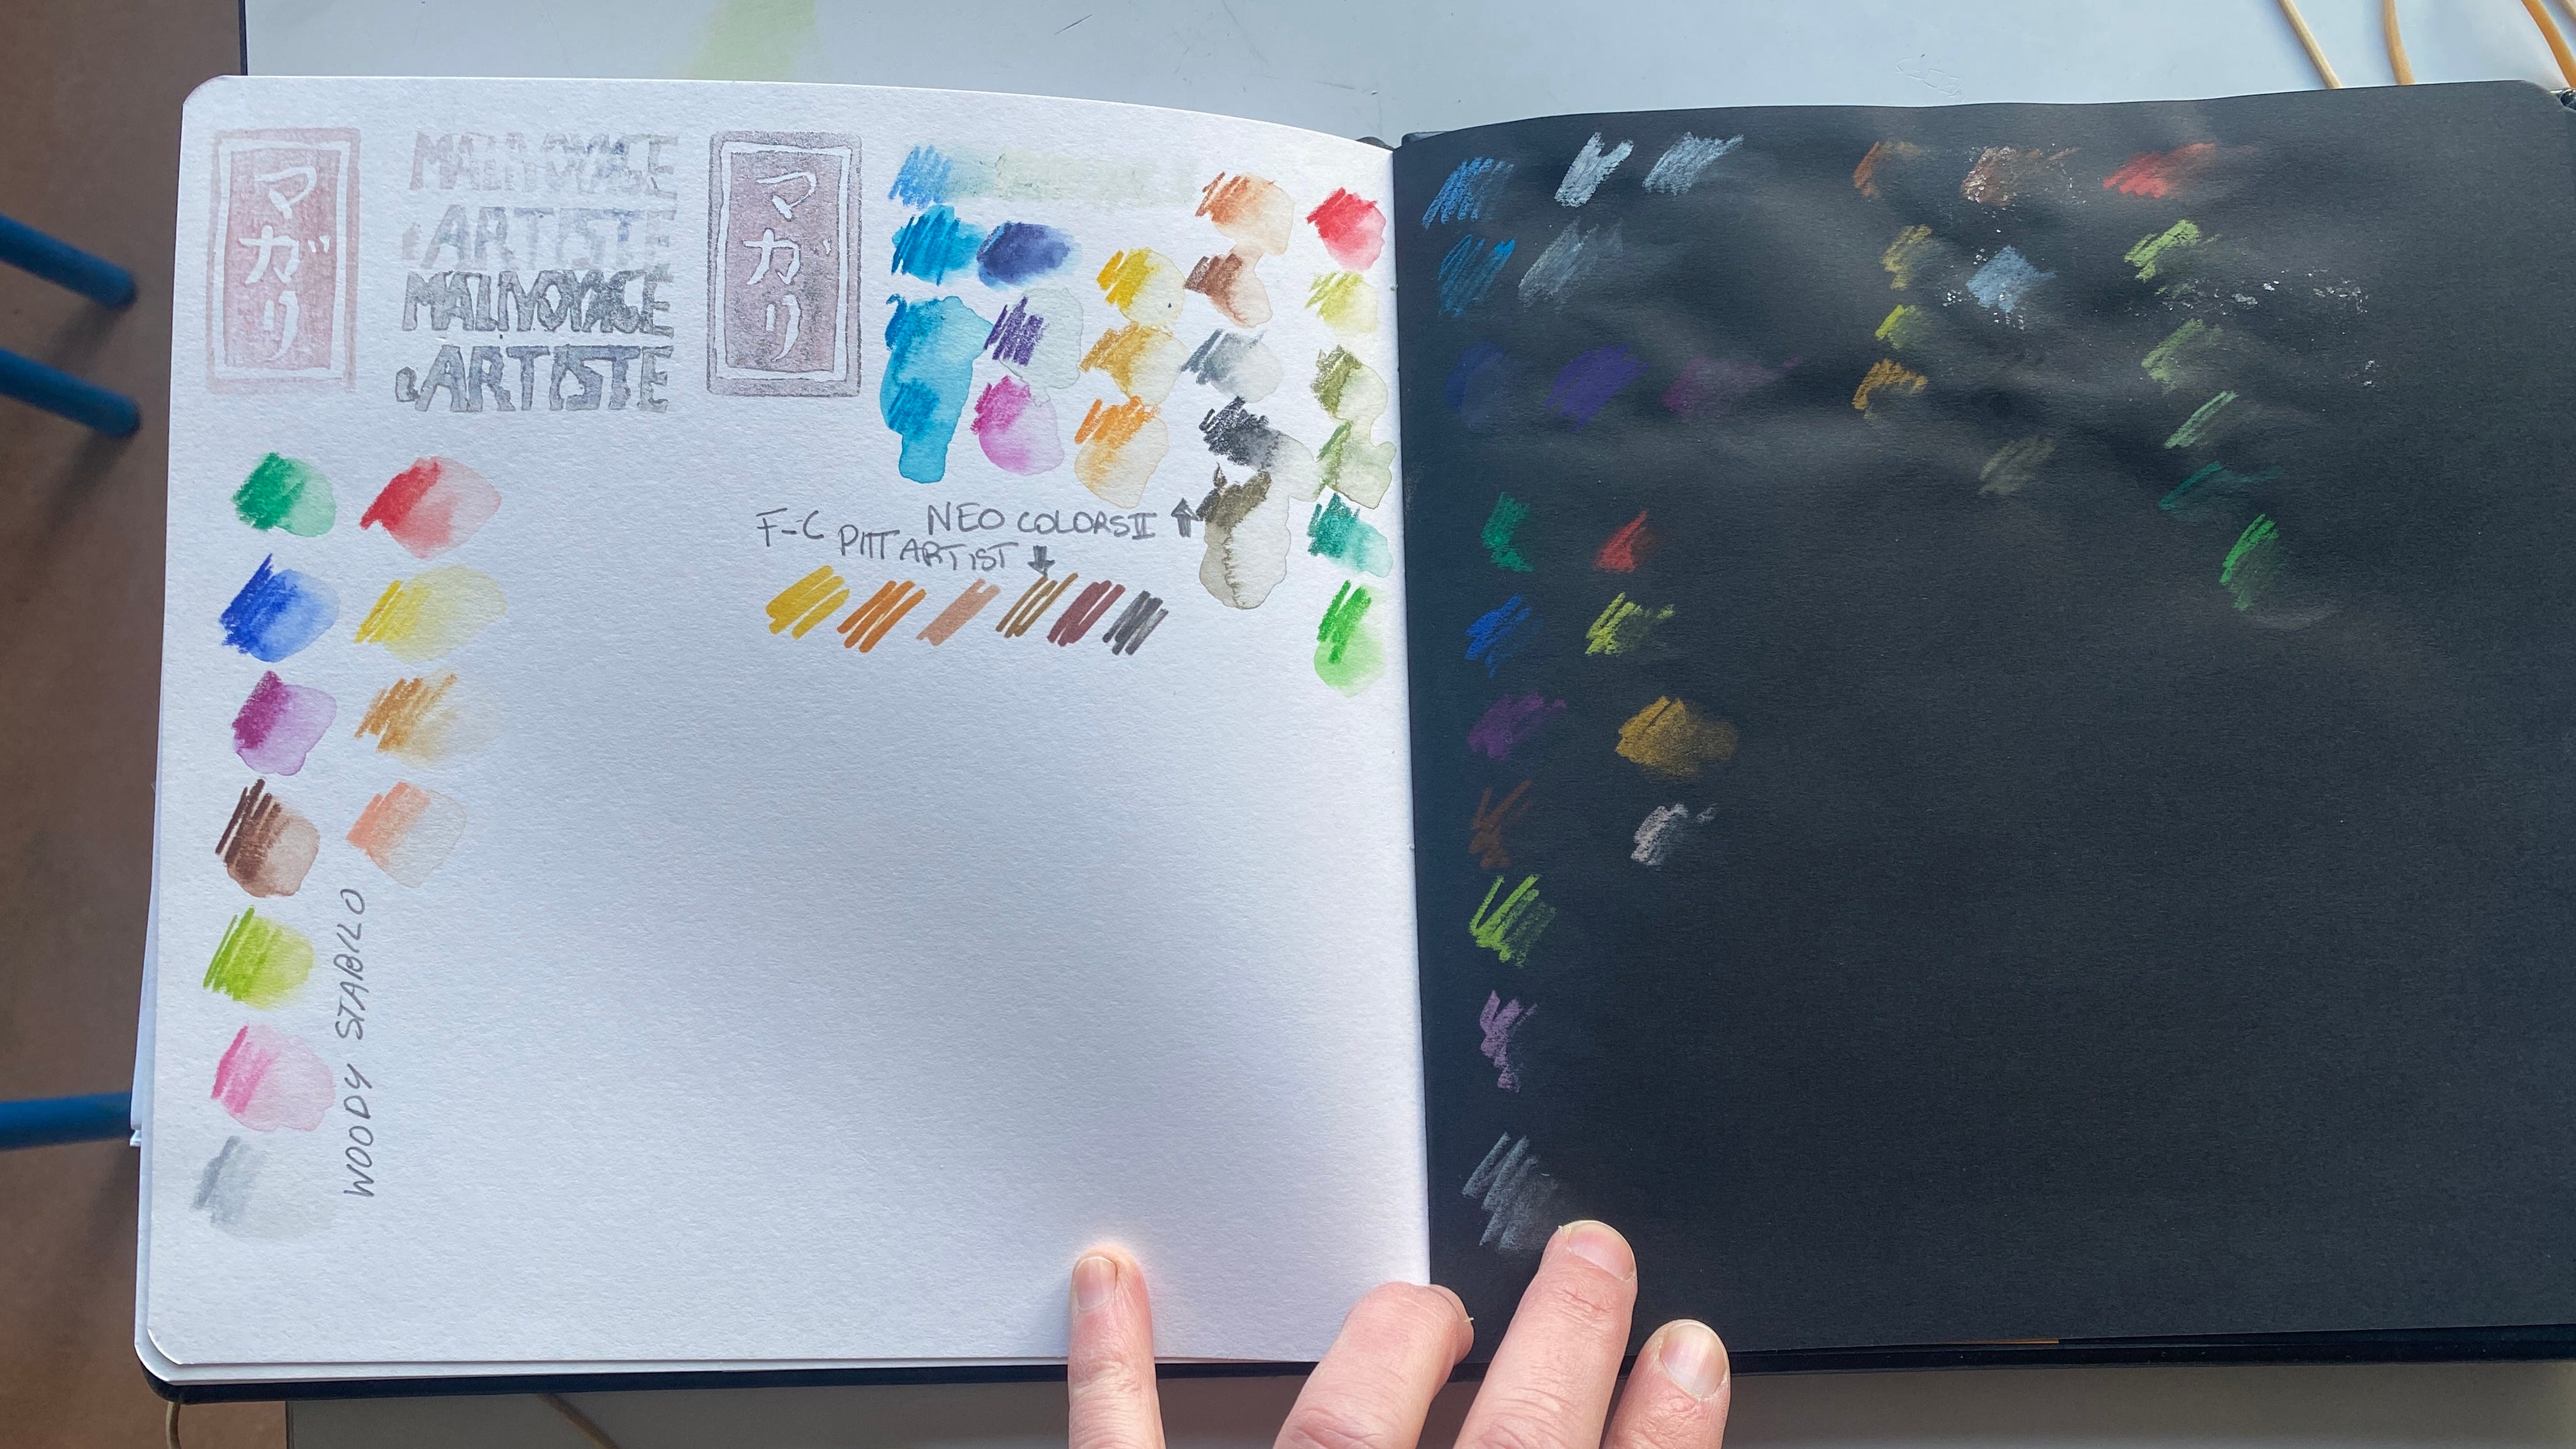 マガリ
MALIVOYAGE
ARTISTE
MALIVOYAGE
ARTISTE
マガリ
NEO COLORS II
F-C PITT ARTIST
WOODY STABILO